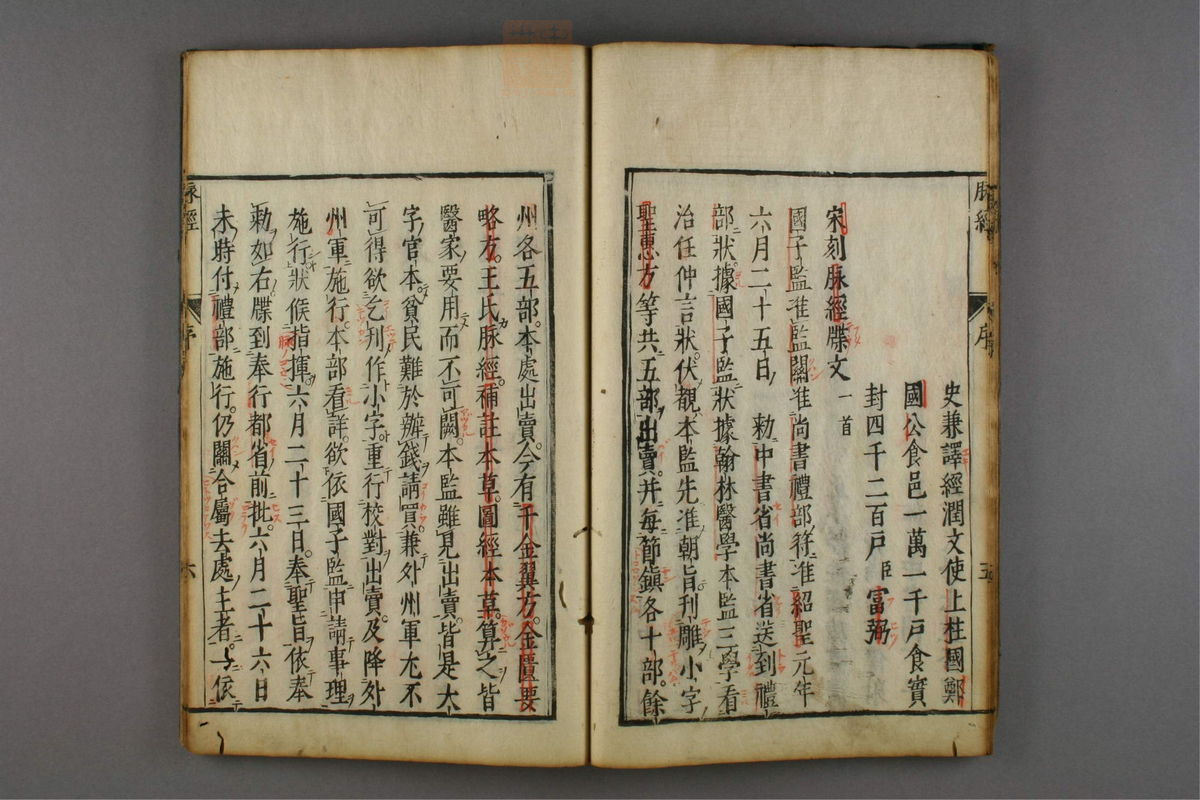 史兼譯經潤文使上柱國鄭
國公食邑一萬一千戸食實
封四千二百戸臣富弼
宋刻脉經牒文一首
國子監准監關准尚書禮部符准紹聖元年
六月二十五日勅中書省尚書省送到禮
部狀據國子監狀據翰林醫學本監三學看
治任仲言狀伏覩本監先准朝旨刋雕小字
聖惠方等共五部出賣并每節鎮各十部餘
州各五部本處出賣今有千金翼方金匱要
略方王氏脉經補註本草圖經本草算之皆
醫家要用而不可闕本監雖見出賣皆是大
字官本貧民難於辦錢請買兼外州軍尢不
可得欲乞刋作小字重行校對出賣及降外
州軍施行本部看詳欲依國子監申請事理
施行狀候指揮六月二十三日奉聖旨依奉
勅如右牒到奉行都省前批六月二十六日
未時付禮部施行仍關合屬去處主者一依
脉經
序
五
脉經
序
六